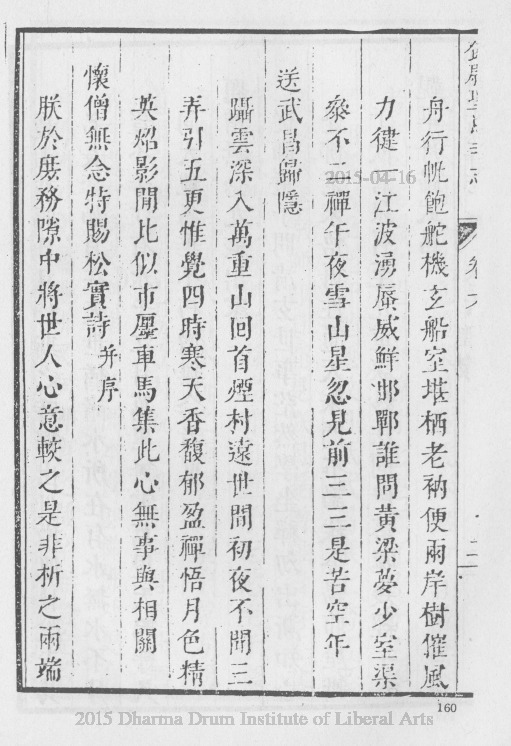 卷六
舟行帆飽舵機玄船空堪栖老衲便兩岸樹摧風
力健一江波湧蜃威鮮邯鄲誰問黃粱夢少室渠
參不二禪午夜雪山星忽見前三三是苦空年
送武昌歸隱
躡雲深入萬重山回首煙村遠世間初夜不聞三
弄引五更惟覺四時寒天香馥郁盈禪悟月色精
英炤影閒比似市廛車馬集此心無事與相關
懷僧無念特賜松實詩 并序
朕於庶務隙中將世人心意較之是非析之兩端
2015-04-16
160
2015 Dharma Drum Institute of Liberal Arts